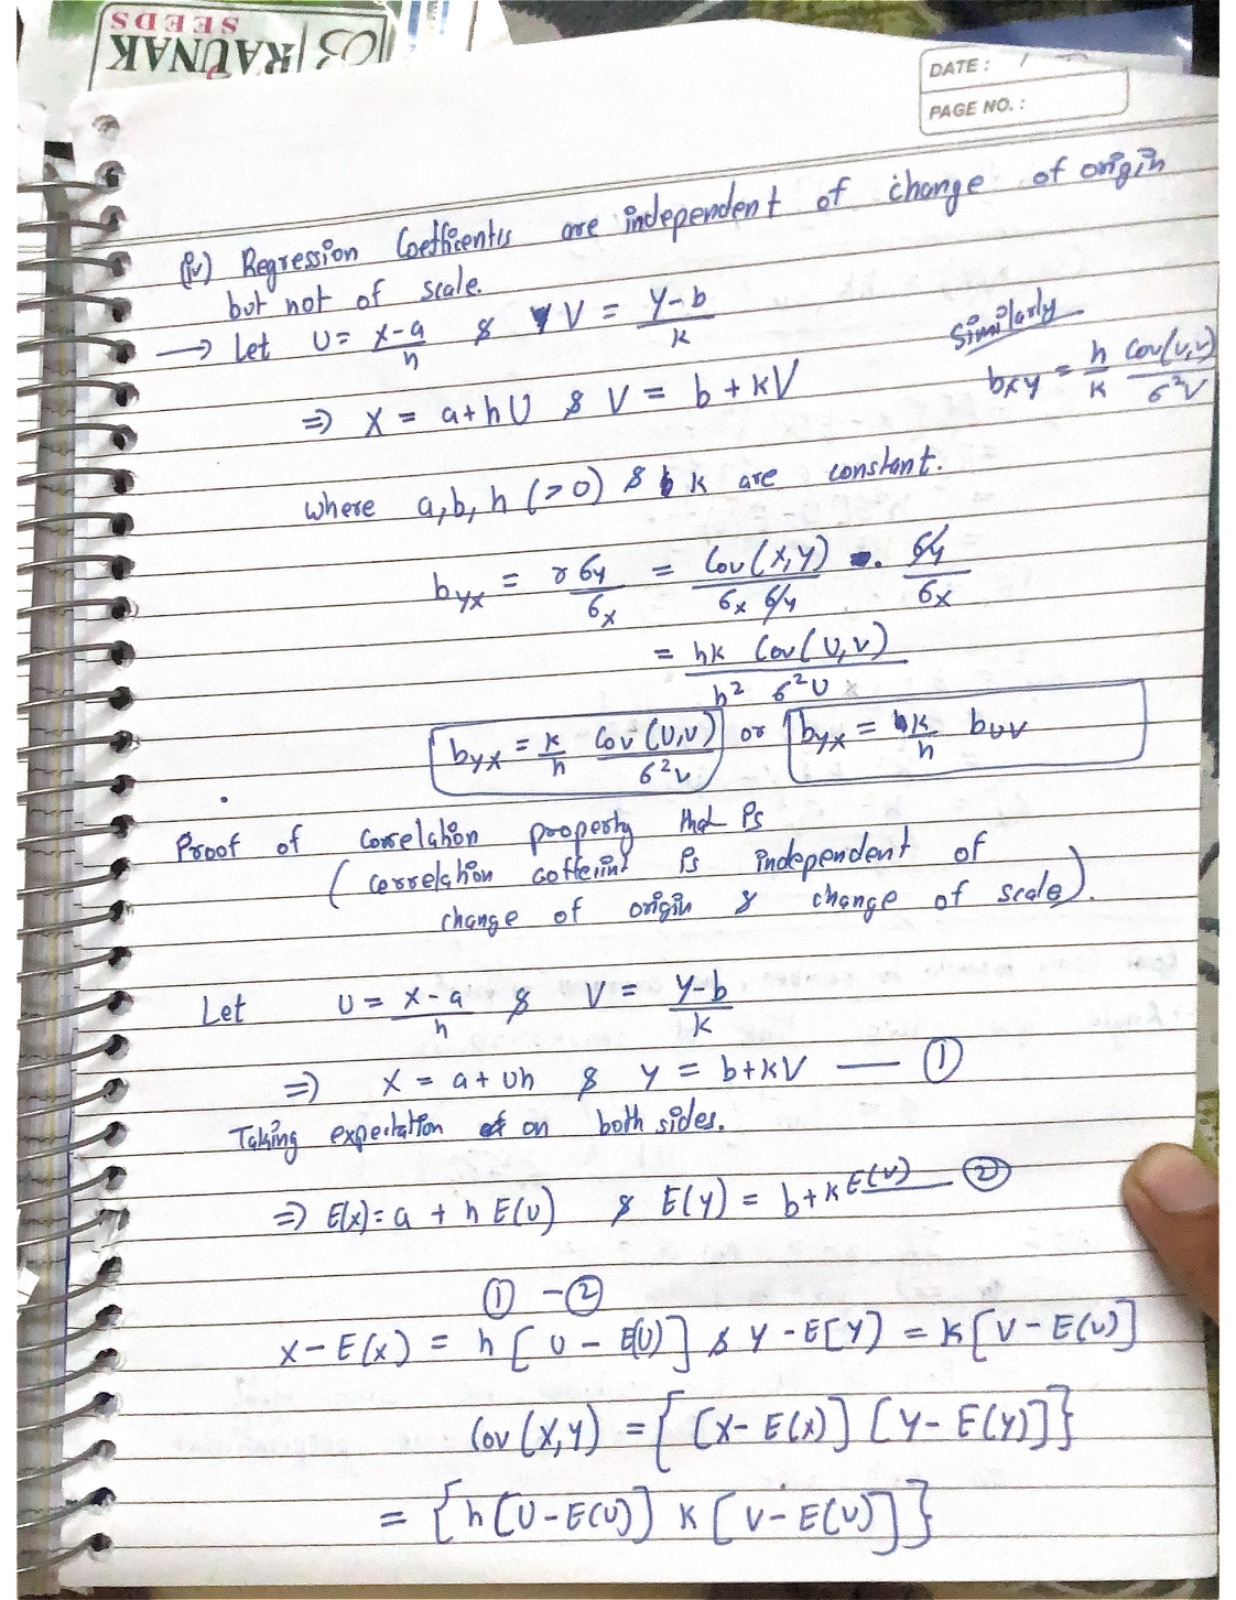 SEEDS
RAUNAK
DATE :
PAGE NO. :
(iv) Regression Coefficients are independent of change of origin
but not of scale.
→ Let U = x-a/h & V = y-b/k
Similarly
bxy = h/k Cov(U,V)/σ²V
⇒ X = a+hU & V = b+kV
where a,b,h (>0) & k are constant.
byx = rσy/σx = Cov(X,Y)/σx σy . σy/σx
= hk Cov(U,V)/h² σ²U
byx = k/h Cov(U,V)/σ²v or byx = k/h buv
Proof of Correlation property that is
(correlation cofferint is independent of
change of origin & change of scale).
Let U = x-a/h & V = y-b/k
⇒ X = a+Uh & y = b+kV — ①
Taking expectation on both sides.
⇒ E(x) = a + h E(U) & E(y) = b+kE(V) — ②
① - ②
x-E(x) = h[U-E(U)] & y-E[Y] = k[V-E(v)]
Cov(X,Y) = {[X-E(x)] [Y-E(Y)]}
= {h[U-E(U)] k[V-E(V)]}